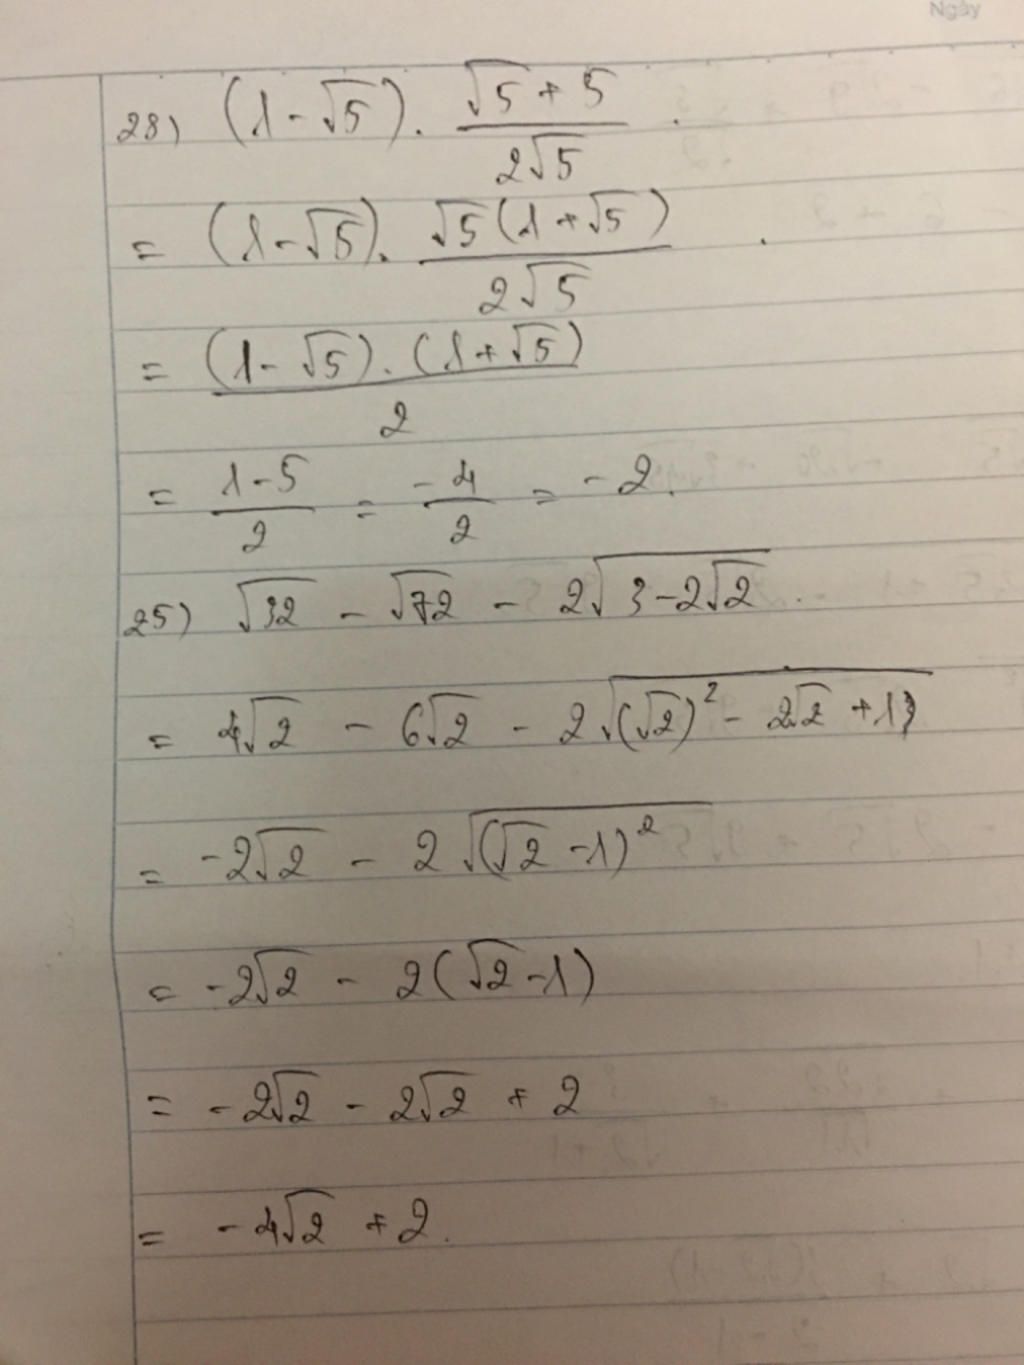 Ngày
28) (1-√5). (√5+5)/(2√5).
= (1-√5). (√5(1+√5))/(2√5)
= ((1-√5).(1+√5))/2
= (1-5)/2 = (-4)/2 = -2.
25) √32 - √72 - 2√(3-2√2).
= 4√2 - 6√2 - 2√((√2)² - 2√2 + 1)
= -2√2 - 2√((√2-1)²)
= -2√2 - 2(√2-1)
= -2√2 - 2√2 + 2
= -4√2 + 2.